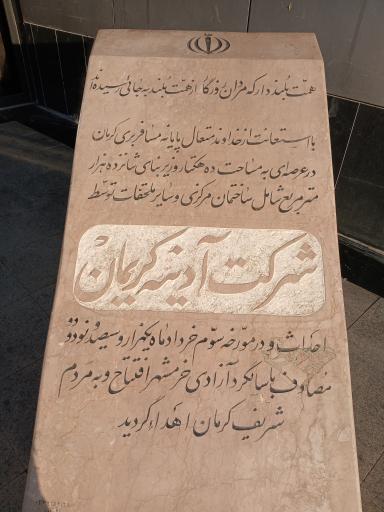 همّت بلند دار که مردان روزگار از همّت بلند به جائی رسیده‌اند
با استعانت از خداوند متعال پایانه مسافربری کرمان
در عرصه‌ای به مساحت ده هکتار و زیربنای شانزده هزار
متر مربع شامل ساختمان مرکزی و سایر ملحقات توسّط
شرکت آدینه کریمان
احداث و در مورّخه سوّم خرداد ماه یکهزار و سیصد و نود و دو
مصادف با سالگرد آزادی خرمشهر افتتاح و به مردم
شریف کرمان اهداء گردید